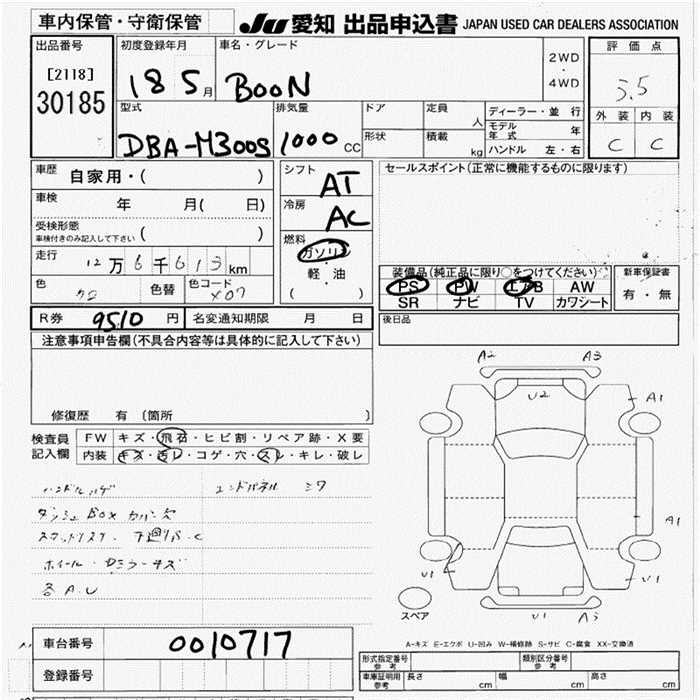 車内保管・守衛保管
JU 愛知 出品申込書 JAPAN USED CAR DEALERS ASSOCIATION
出品番号
[2118]
30185
初度登録年月
18 5月
車名・グレード
BOON
2WD
・
4WD
評価点
3.5
外装 内装
C C
型式
DBA-M300S
排気量
1000 CC
ドア
形状
定員 人
積載 kg
ディーラー・並行
モデル年式 年
ハンドル 左・右
車歴 自家用・( )
車検 年 月( 日)
受検形態
車検付きのみ記入して下さい ( )
走行 12万6千613km
色 クロ 色替 色コード X07
シフト AT
冷房 AC
燃料
ガソリン
・
軽・油
( )
セールスポイント(正常に機能するものに限ります)
装備品(純正品に限り○をつけてください)
PS PW エアB AW
SR ナビ TV カワシート
新車保証書
有・無
R券 9510円 名変通知期限 月 日
後日品
注意事項申告欄(不具合内容等は具体的に記入して下さい)
修復歴 有〔箇所
検査員記入欄
FW キズ・飛石・ヒビ割・リペア跡・X要
内装 キズ・汚レ・コゲ・穴・スレ・キレ・破レ
ハンドルハゲ
ダッシュBOXカバー欠
各A.U
A2 A3
U2
A1
A1
U1 U1
U1 A3
スペア
A-キズ E-エクボ U-凹み W-補修跡 S-サビ C-腐食 XX-交換済
車台番号 0010717
登録番号
形式指定番号 参考
類別区分番号 参考
車庫証明用 参考 長さ cm 幅 cm 高さ cm